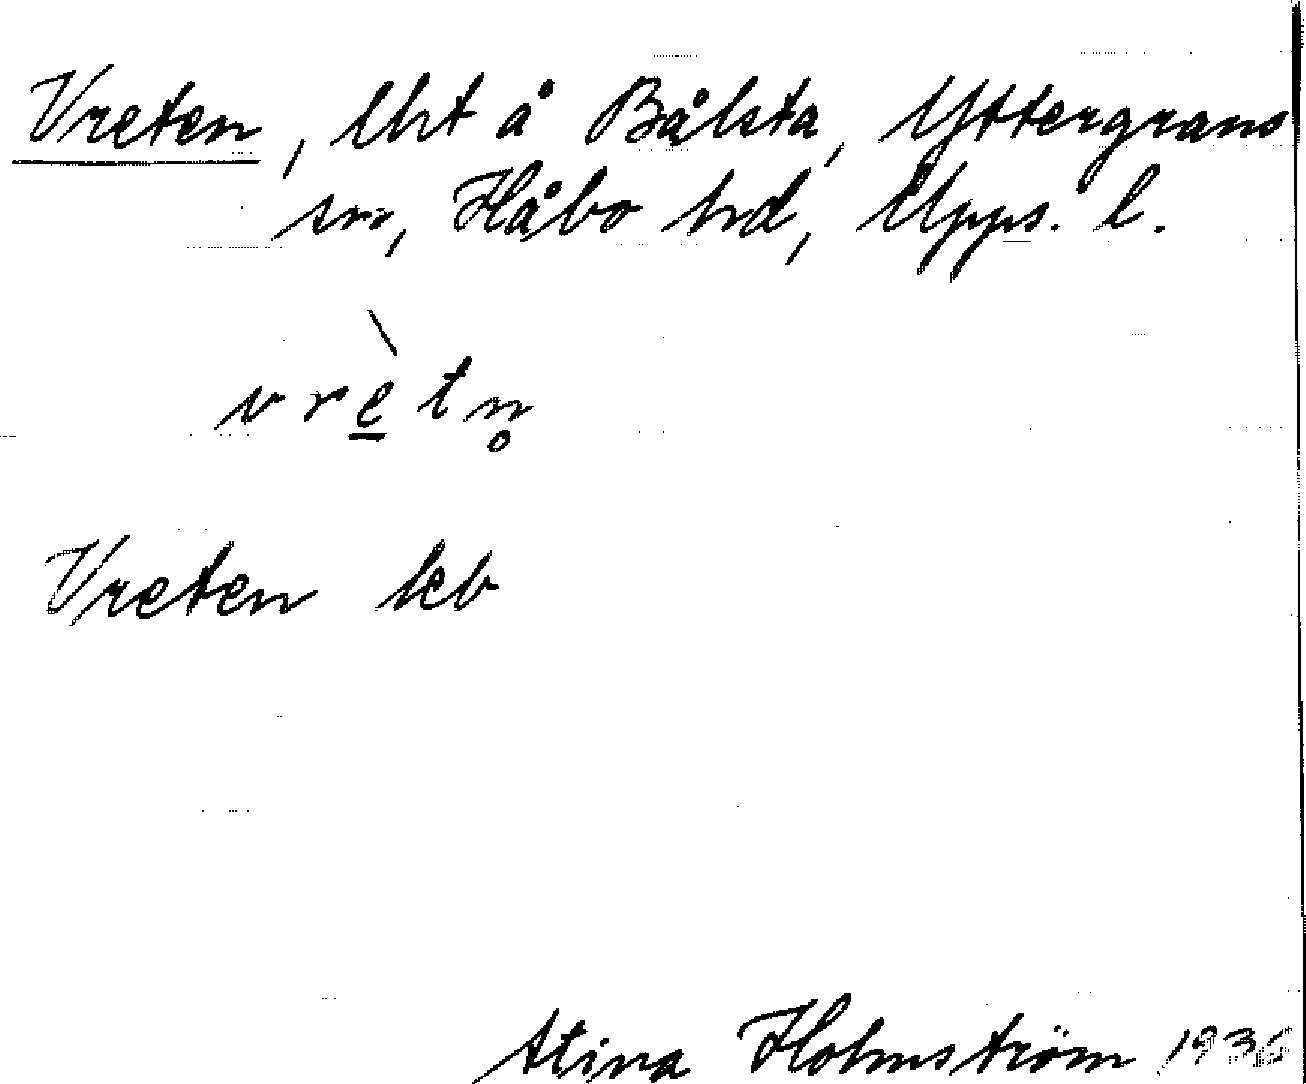 Vreten, lht å Bålsta, Yttergrans
sn, Håbo hd, Upps. l.
vrè̠tn̥
Vreten keb
Stina Holmström 1936